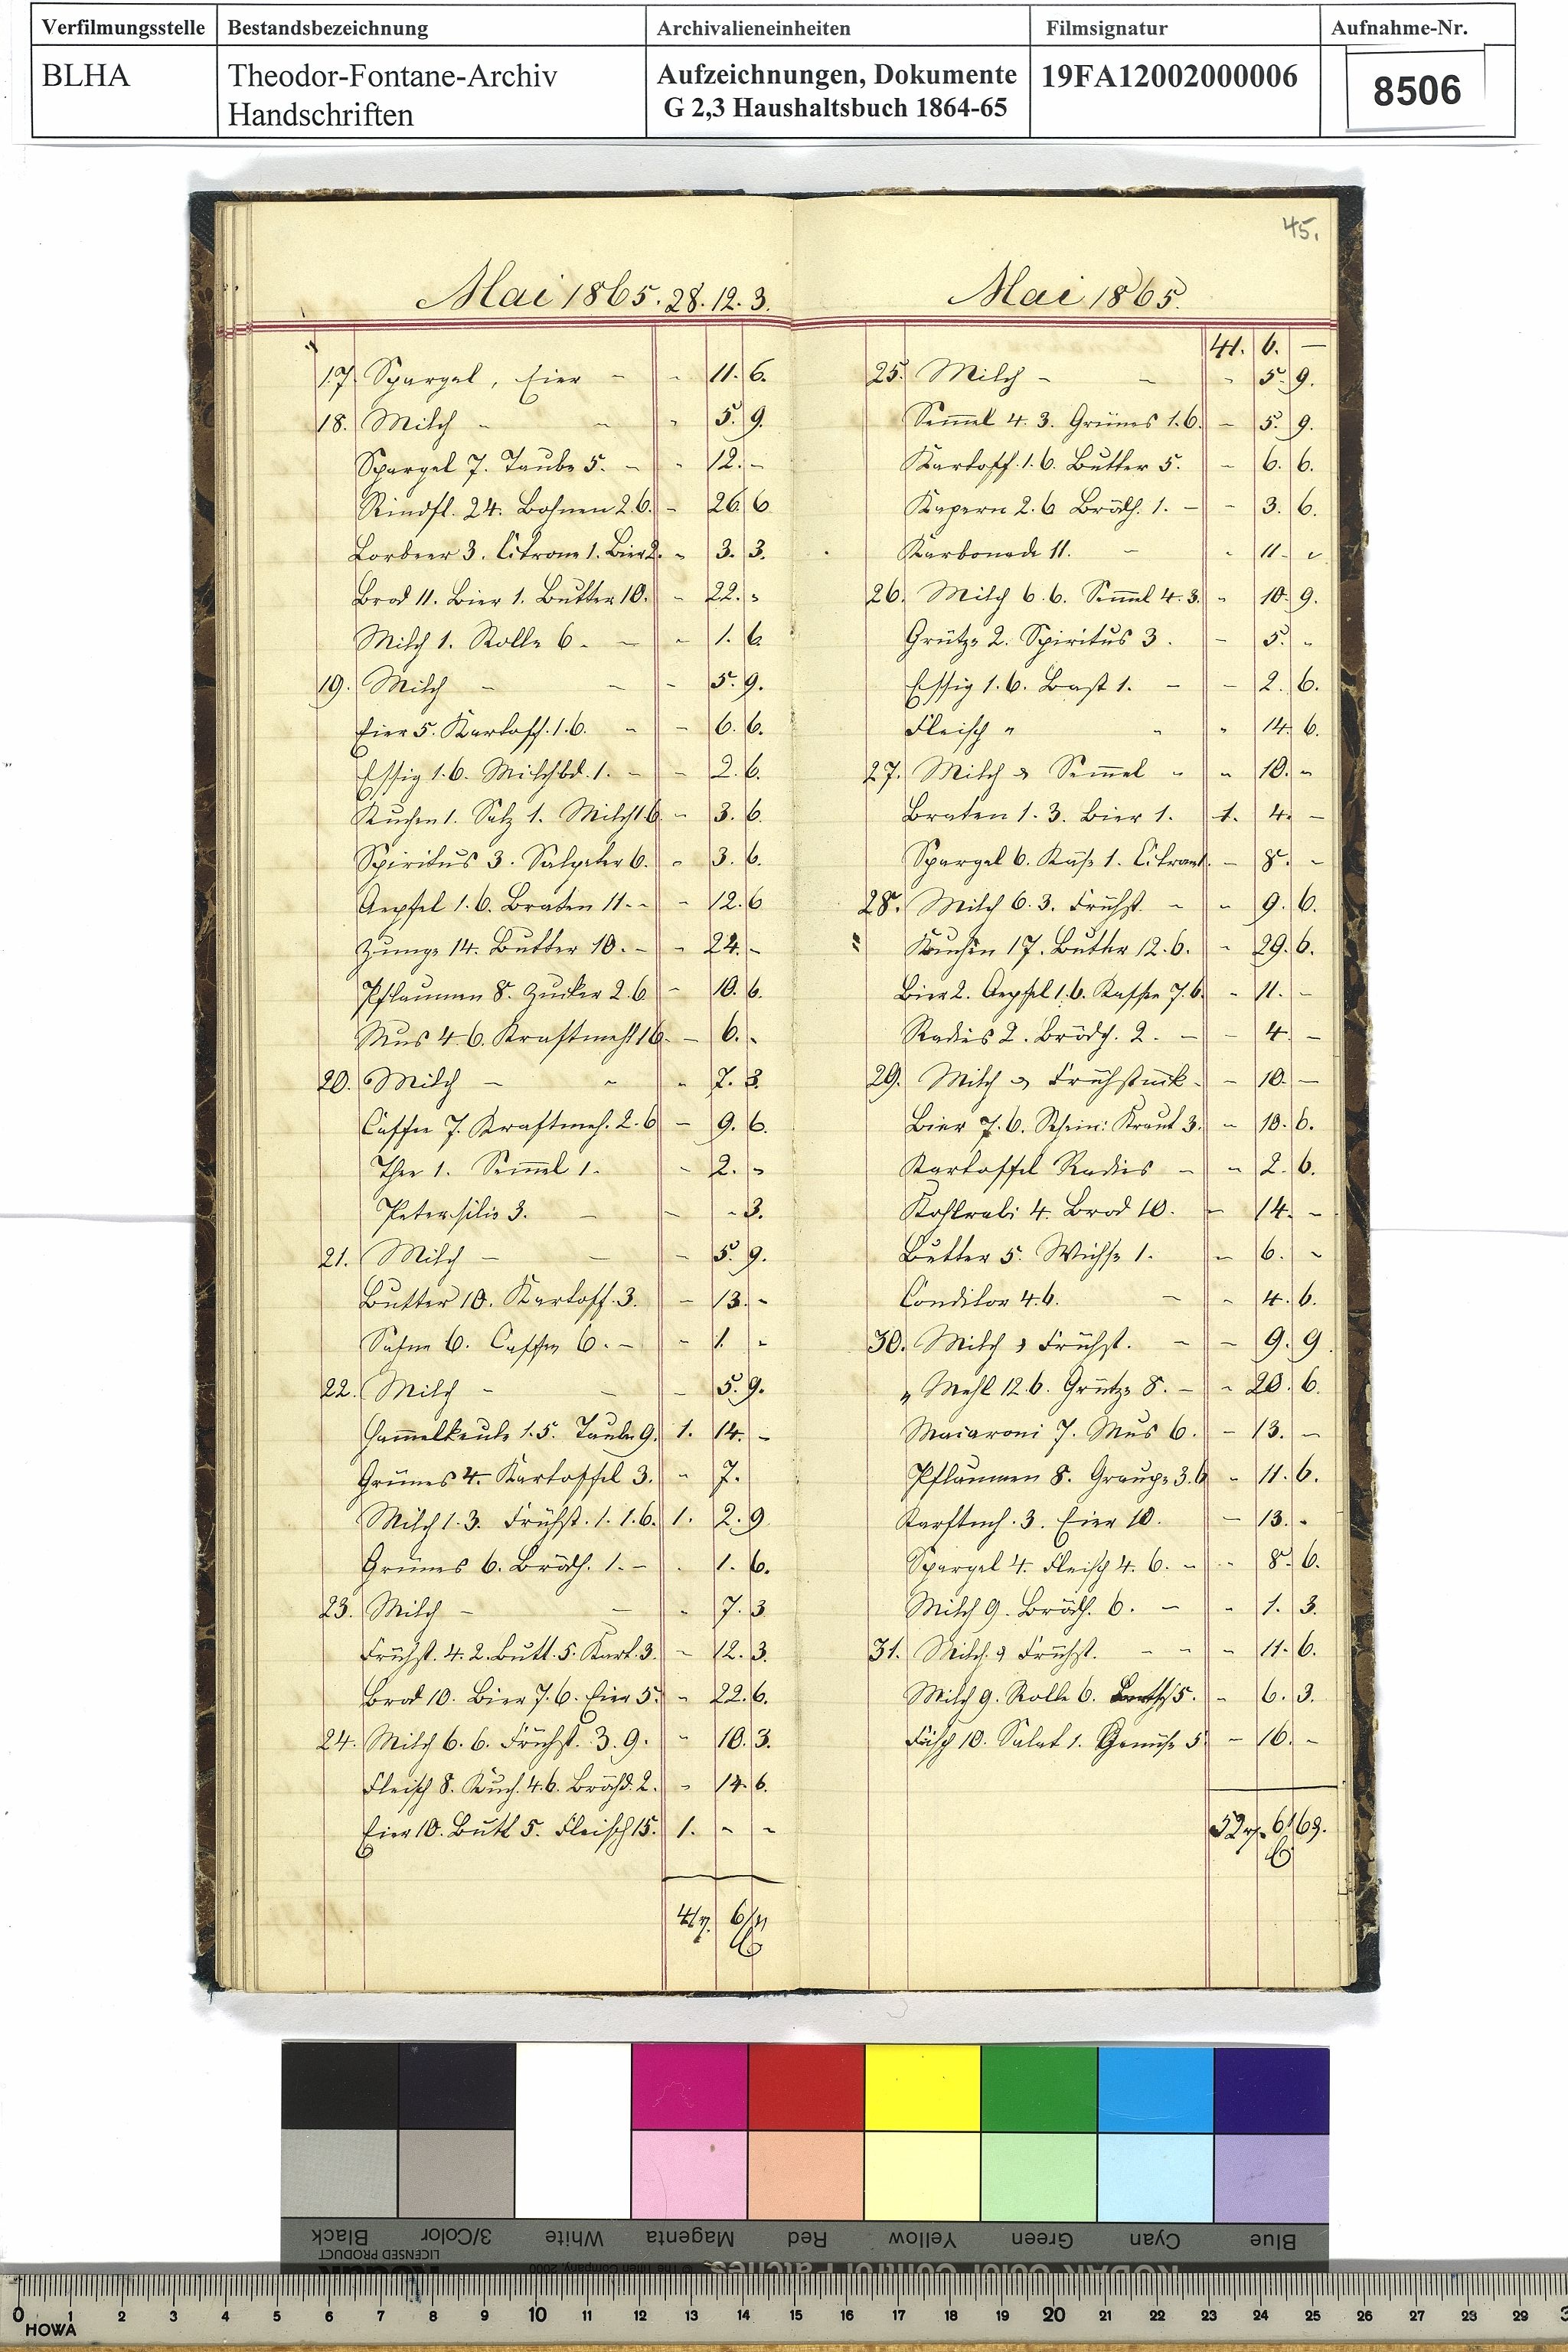 Verfilmungsstelle Bestandsbezeichnung Archivalieneinheiten Filmsignatur Aufnahme-Nr.
BLHA Theodor-Fontane-Archiv Handschriften Aufzeichnungen, Dokumente G 2,3 Haushaltsbuch 1864-65 19FA12002000006 8506
Mai 1865. 28. 12. 3.
17. Spargel, Eier - - 11. 6.
18. Milch - - - 5. 9.
Spargel 7. Taube 5. - - 12. -
Rindfl. 24. Bohnen 2.6. - 26. 6.
Lorbeer 3. Citrone 1. Bier 2. - 3. 3.
Brod 11. Bier 1. Butter 10. - 22. -
Milch 1. Rolle 6. - - 1. 6.
19. Milch - - - 5. 9.
Eier 5. Kartoff. 1.6. - - 6. 6.
Essig 1.6. Milchbd. 1. - - 2. 6.
Kuchen 1. Salz 1. Milch 1.6. - 3. 6.
Spiritus 3. Salpeter 6. - 3. 6.
Aepfel 1.6. Braten 11. - - 12. 6
Zunge 14. Butter 10. - - 24. -
Pflaumen 8. Zucker 2.6 - 10. 6.
Mus 4.6. Kraftmehl 1.6. - 6. -
20. Milch - - - 7. 3.
Caffee 7. Kraftmeh. 2.6 - 9. 6.
Thee 1. Semmel 1. - 2. -
Petersilie 3. - - - 3.
21. Milch - - - 5. 9.
Butter 10. Kartoff. 3. - 13. -
Sahne 6. Caffee 6. - - 1. -
22. Milch - - - 5. 9.
Hammelkeule 1.5. Taube 9. 1. 14. -
Grünes 4. Kartoffel 3. - 7.
Milch 1.3. Frühst. 1. 1.6. 1. 2. 9
Grünes 6. Brödh. 1. - . 1. 6.
23. Milch - - - 7. 3
Frühst. 4.2. Butt. 5. Kart. 3. - 12. 3.
Brod 10. Bier 7.6. Eier 5. - 22. 6.
24. Milch 6.6. Frühst. 3.9. - 10. 3.
Fleisch 8. Kuch. 4.6. Brödch. 2. - 14. 6.
Eier 10. Butt 5. Fleisch 15. 1. - -
41 6
45.
Mai 1865.
41. 6. -
25. Milch - - - 5. 9.
Semmel 4.3. Grünes 1.6. - 5. 9.
Kartoff. 1.6. Butter 5. - 6. 6.
Kapern 2.6 Brödh. 1. - - 3. 6.
Karbonade 11. - - 11.
26. Milch 6.6. Semmel 4.3. - 10. 9.
Grütze 2. Spiritus 3. - 5. -
Essig 1.6. Bast 1. - - 2. 6.
Fleisch " " " 14. 6.
27. Milch & Semmel - - 10. -
Braten 1.3. Bier 1. 1. 4. -
Spargel 6. Käse 1. Citrone 1. - 8. -
28. Milch 6.3. Frühst. - - 9. 6.
" Kuchen 17. Butter 12.6. - 29. 6.
Bier 2. Aepfel 1.6. Kaffee 7.6. - 11. -
Radies 2. Brödch. 2. - - 4 -
29. Milch & Frühstück - - 10. -
Bier 7.6. Kraut 3. - 10. 6.
Kartoffel Radies - - 2. 6.
Kohlrabi 4. Brod 10. - 14. -
Butter 5. Wichse 1. - 6. -
Conditor 4.6. - - 4. 6.
30. Milch & Frühst. - - 9. 9
" Mehl 12.6. Grütze 8. - - 20. 6.
Macaroni 7. Mus 6. - 13. -
Pflaumen 8. Graupe 3.6 - 11. 6.
Karftmeh. 3. Eier 10. - 13. -
Spargel 4. Fleisch 4.6. - - 8. 6.
Milch 9. Brödh. 6. - - 1. 3.
31. Milch & Frühst. - - - 11. 6.
Milch 9. Rolle 6. 5. - 6. 3.
Fisch 10. Salat 1. Gemüse 5. - 16. -
52 6
Black 3/Color White Magenta Red Yellow Green Cyan Blue
LICENSED PRODUCT
Kodak © The Tiffen Company, 2000 KODAK Color Control Patches
0 1 2 3 4 5 6 7 8 9 10 11 12 13 14 15 16 17 18 19 20 21 22 23 24 25 26 27 28 29 3
HOWA